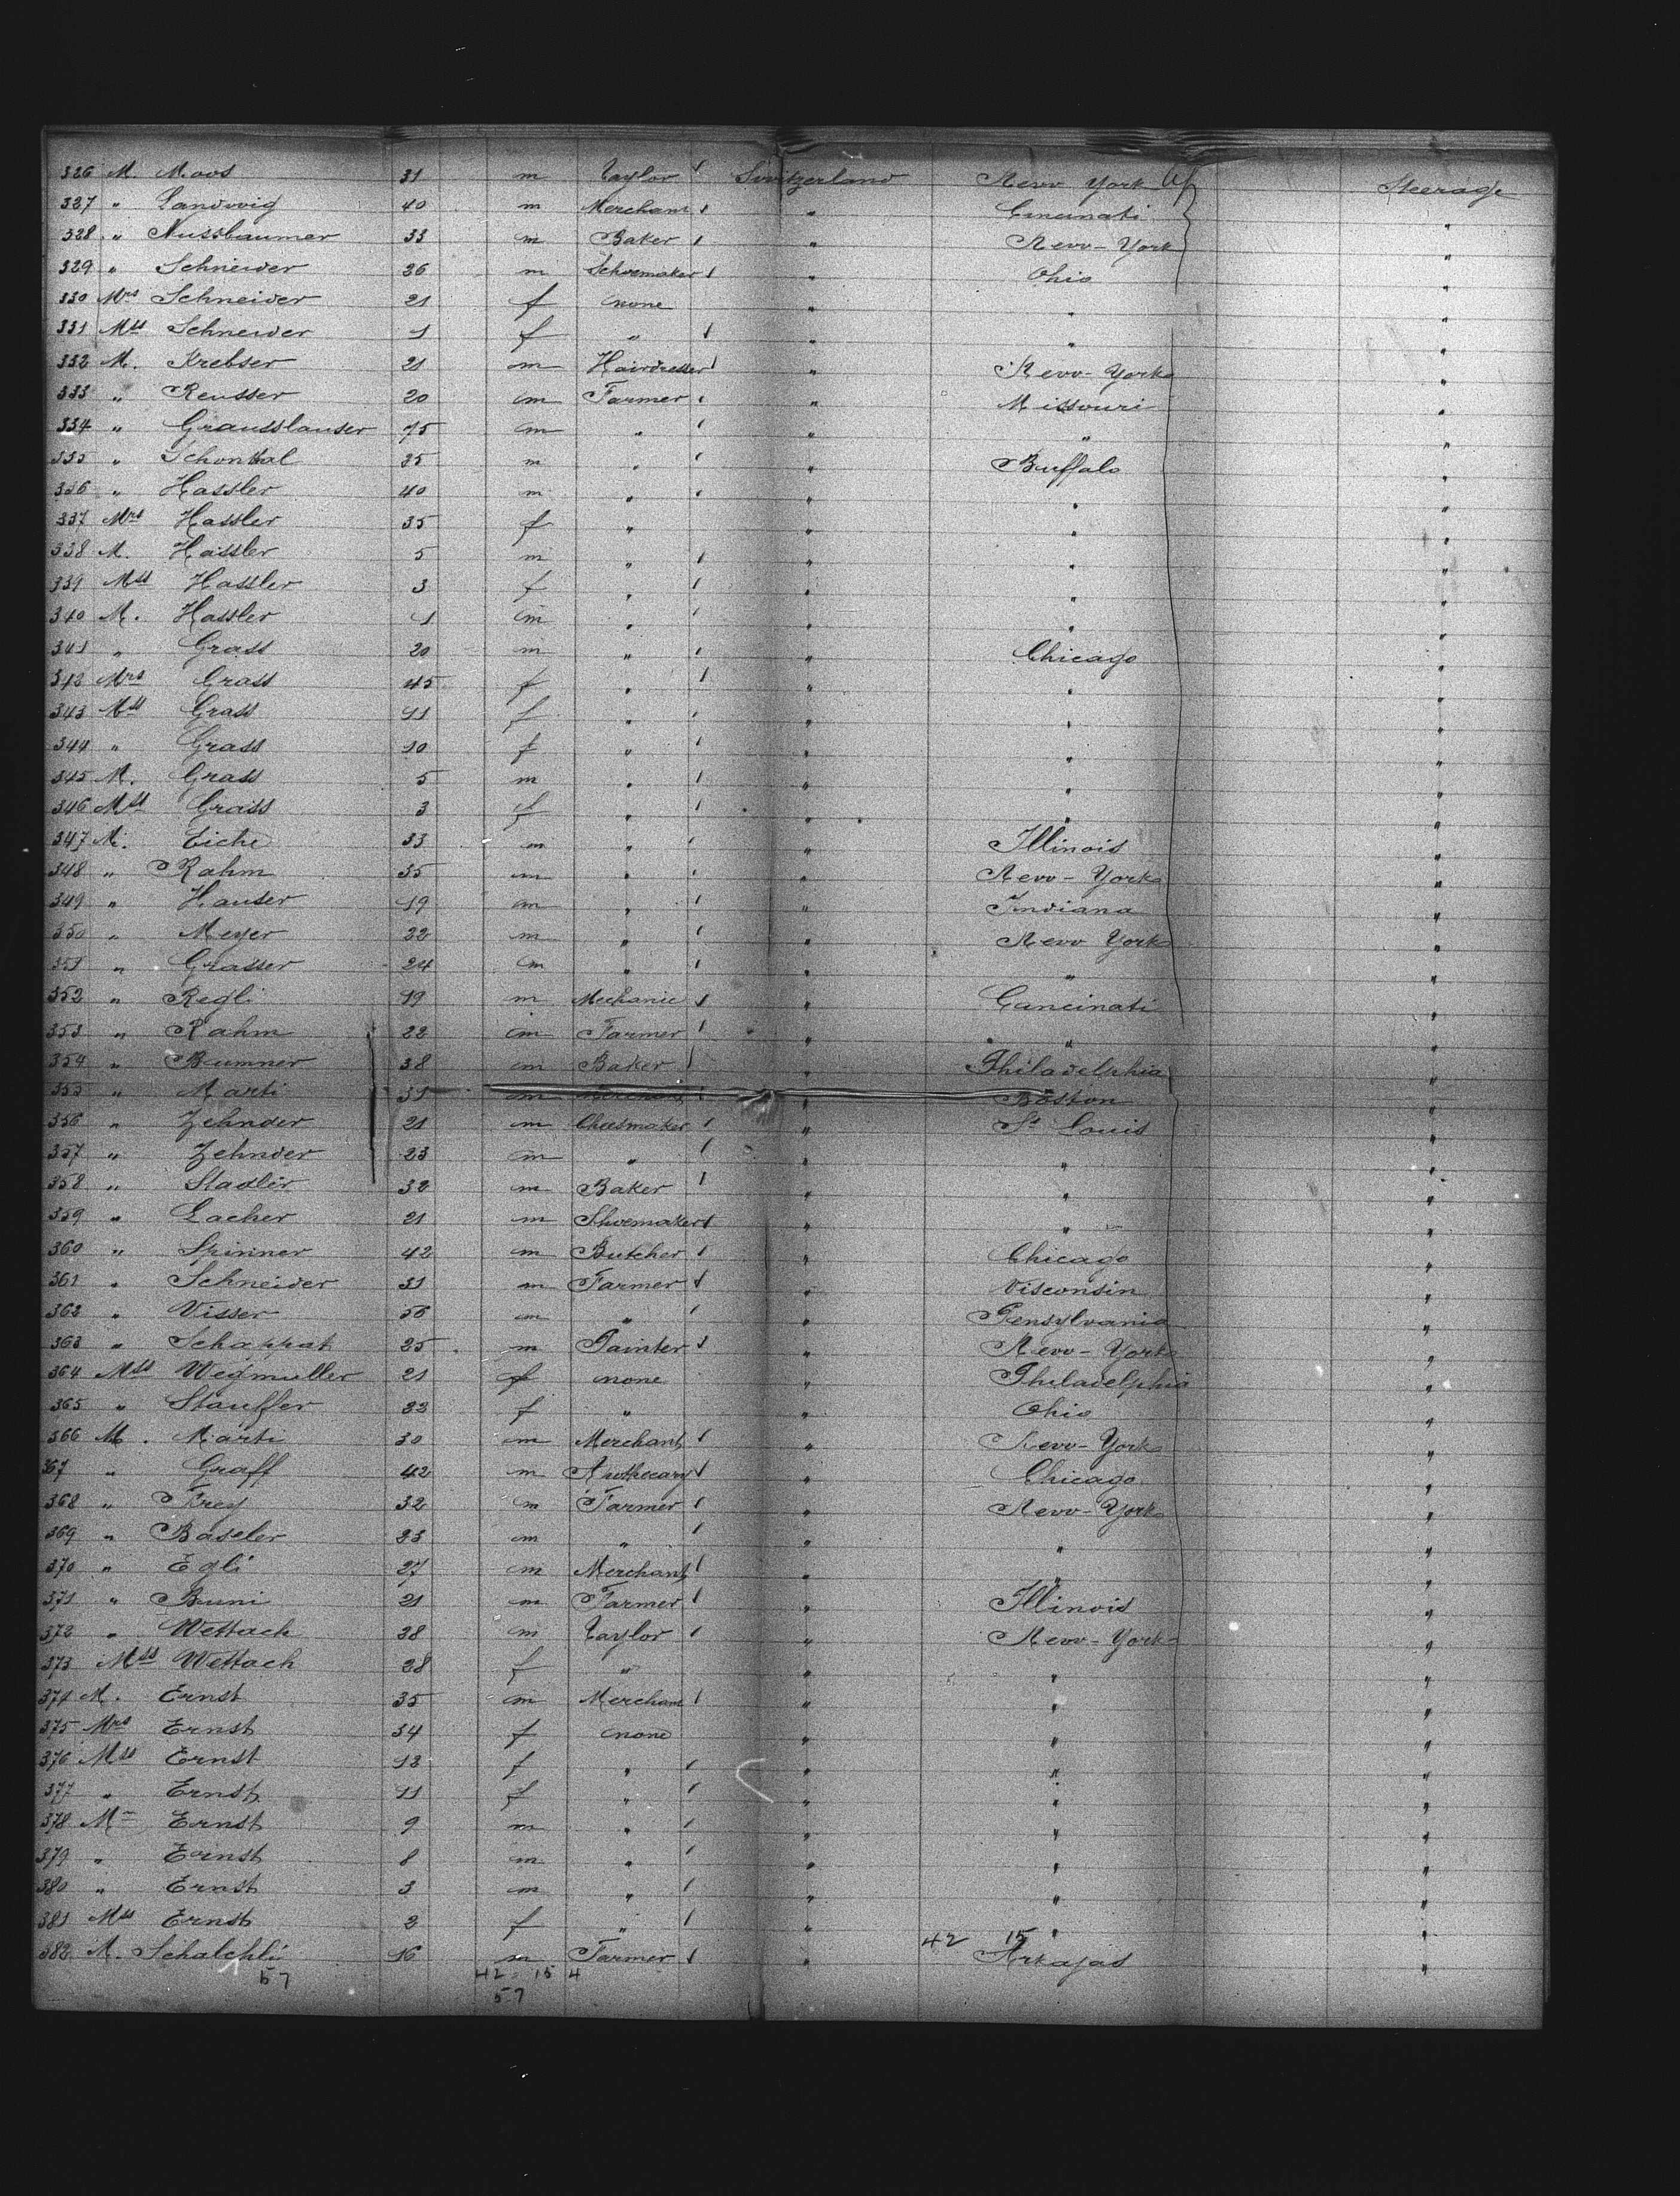 326 M. Moos 31 m Taylor Switzerland New York Steerage
327 " Landwig 40 m Merchant " Cincinati "
328 " Nussbaumer 33 m Baker " New-York "
329 " Schneider 26 m Schoemaker " Ohio "
330 Mrs Schneider 21 f none " " "
331 Mss Schneider 1 f " " " "
332 M. Krebser 21 m Hairdresser " New-York "
333 " Reusser 20 m Farmer " Missouri "
334 " Grausslauser 75 m " " " "
335 " Schontal 25 m " " Buffalo "
336 " Hassler 40 m " " " "
337 Mrs Hassler 35 f " " " "
338 M. Hassler 5 m " " " "
339 Mss Hassler 3 f " " " "
340 M. Hassler 1 m " " " "
341 " Grass 20 m " " Chicago "
342 Mrs Grass 45 f " " " "
343 Mss Grass 11 f " " " "
344 " Grass 10 f " " " "
345 M. Grass 5 m " " " "
346 Mss Grass 3 f " " " "
347 M. Eiche 33 m " " Illinois "
348 " Rahm 35 m " " New-York "
349 " Hauser 19 m " " Indiana "
350 " Meyer 22 m " " New York "
351 " Grasser 24 m " " " "
352 " Regli 19 m Mechanic " Cancinati "
353 " Rahm 22 m Farmer " " "
354 " Bumner 38 m Baker " Philadelphia "
355 " Marti 31 m Merchant " Boston "
356 " Zehnder 21 m Cheesmaker " St Louis "
357 " Zehnder 23 m " " " "
358 " Stadler 32 m Baker " " "
359 " Lacher 21 m Shoemaker " " "
360 " Spinner 42 m Butcher " Chicago "
361 " Schneider 31 m Farmer " Visconsin "
362 " Visser 56 m " " Pensylvania "
363 " Schappat 25 m Painter " New-York "
364 Mss Wegmuller 21 f none " Philadelphia "
365 " Stauffer 22 f " " Ohio "
366 M. Marti 30 m Merchant " New-York "
367 " Graff 42 m Apothecary " Chicago "
368 " Frey 32 m Farmer " New-York "
369 " Baseler 23 m " " " "
370 " Egli 27 m Merchant " " "
371 " Buni 21 m Farmer " Illinois "
372 " Wettach 28 m Taylor " New-York "
373 Mss Wettach 28 f " " " "
374 M. Ernst 35 m Merchant " " "
375 Mrs Ernst 34 f none " " "
376 Mss Ernst 12 f " " " "
377 " Ernst 11 f " " " "
378 M Ernst 9 m " " " "
379 " Ernst 8 m " " " "
380 " Ernst 3 m " " " "
381 Mss Ernst 2 f " " " "
42 15
382 M. Schalchli 16 m Farmer " Arkajas "
57 42 15 4
57